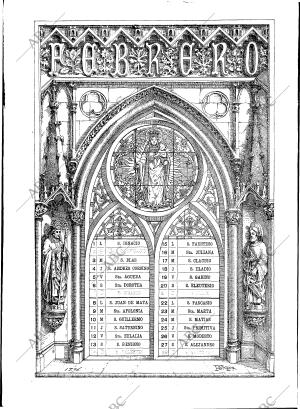 FEBRERO
1 L S. IGNACIO
3 M S. BLAS
4 J S. ANDRÉS CORSINO
5 V Sta. AGUEDA
6 S Sta. DOROTEA
8 L S. JUAN DE MATA
9 M Sta. APOLONIA
10 M S. GUILLERMO
11 J S. SATURNINO
12 V Sta. EULALIA
13 S S. BENIGNO
15 L S. FAUSTINO
16 M Sta. JULIANA
17 M S. CLAUDIO
18 J S. ELADIO
19 V S. GABINO
20 S S. ELEUTERIO
22 L S. PASCASIO
23 M Sta. MARTA
24 M S. MATIAS
25 J Sta. PRIMITIVA
26 V S. MODESTO
27 S S. ALEJANDRO